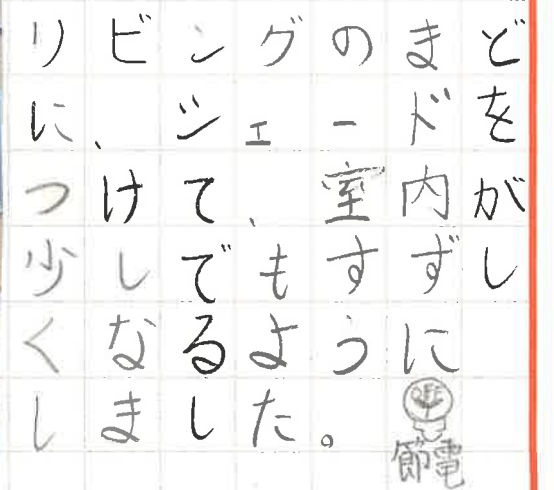 リビングのまど
に、シェードを
つけて、室内が
少しでもすずし
くなるように
しました。
節電